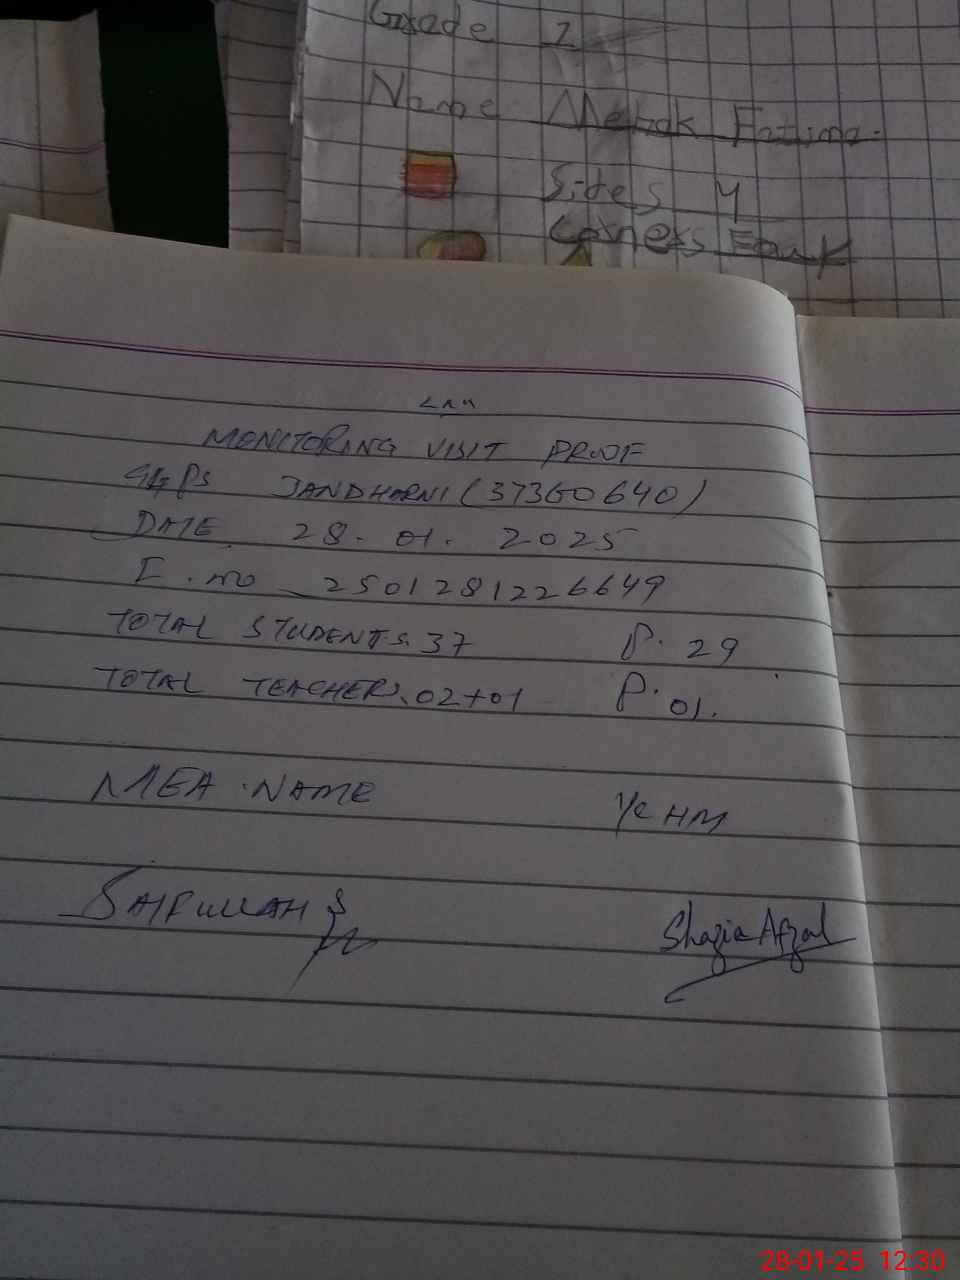 Grade 1
Name Mehak Fatima.
Sides 4
Corness Four
MONITORING VISIT PROOF
GGPS JANDHORNI (37360640)
DATE 28.01.2025
I.no 2501281226649
TOTAL STUDENTS. 37 P. 29
TOTAL TEACHERS. 02+01 P. 01.
MEA.NAME I/C HM
SAIFULLAH Shazia Afzal
28-01-25 12:30